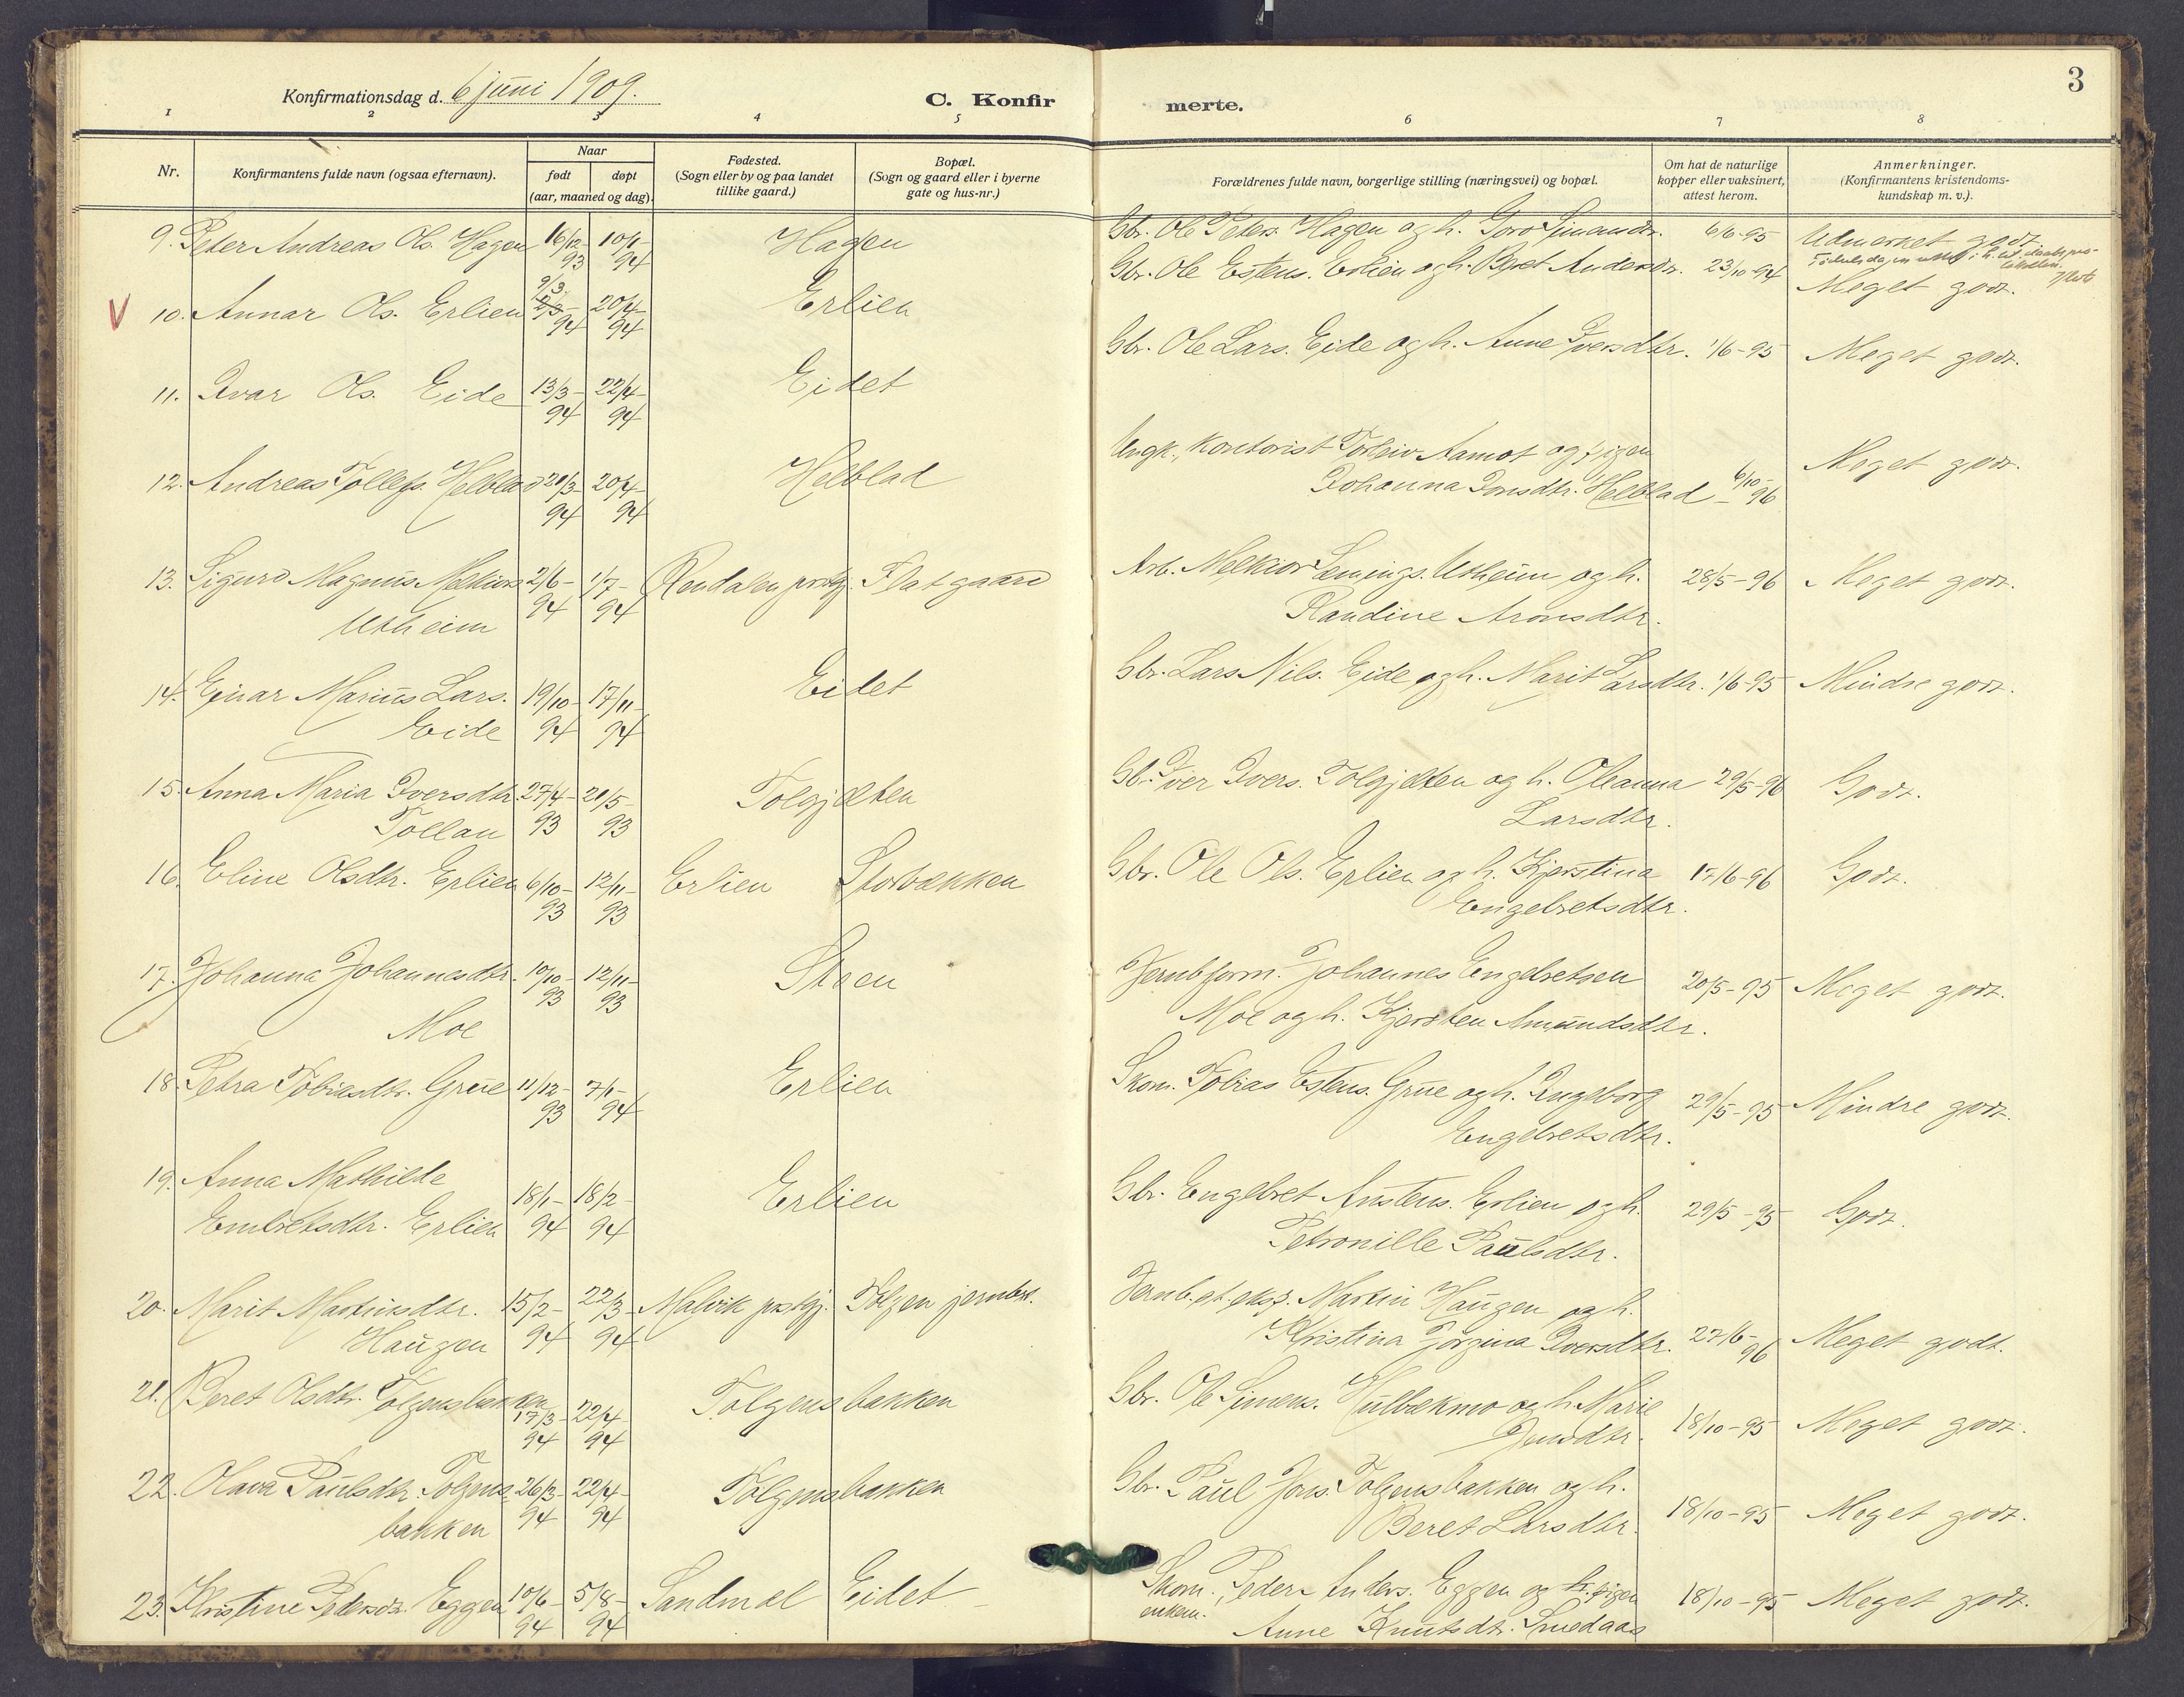 3
Konfirmationsdag d. 6 juni 1909.
C. Konfir
merte.
1 2 3 4 5 6 7 8
Nr.
Konfirmantens fulde navn (ogsaa efternavn).
Naar
født
døpt
(aar, maaned og dag).
Fødested.
(Sogn eller by og paa landet
tillike gaard.)
Bopæl.
(Sogn og gaard eller i byerne
gate og hus-nr.)
Forældrenes fulde navn, borgerlige stilling (næringsvei) og bopæl.
Om hat de naturlige
kopper eller vaksinert,
attest herom.
Anmerkninger.
(Konfirmantens kristendoms-
kundskap m. v.).
9. Peter Andreas Ols. Hagen 16/12-93 10/1-94 Hagen Gbr. Ole Peters. Hagen og h. Goro Simensdr. 6/6-95 Udmerket godt
V 10. Annar Ols. Erlien 9/3 94 20/4-94 Erlien Gbr. Ole Estens. Erlien og h. Beret Andersdr. 23/10-94 Meget godt.
11. Ivar Ols. Eide 13/3-94 22/4-94 Eidet Gbr. Ole Lars. Eide og h. Anne Iversdtr. 1/6-95 Meget godt.
12. Andreas Tollefs. Helblad 20/3-94 20/4-94 Helblad Ungk., kontorist Torleiv Aamot og pigen
Johanna Jonsdtr. Helblad 6/10-96 Meget godt.
13. Sigurd Magnus Melkiors 2/6-94 1/7-94 Rendalen prstgj. Flatgaard Arb. Melkior Lænings. Utheim og h. 28/5-96 Meget godt.
Utheim Randine Aronsdtr.
14. Einar Marius Lars. 19/10-94 17/11-94 Eidet Gbr. Lars Nils. Eide og h. Marit Larsdtr. 1/6-95 Mindre godt.
Eide
15. Anna Maria Iversdtr. 27/4-93 21/5-93 Tolgjæten Gb. Iver Ivers. Tolgjæten og h. Oleanna 29/5-96 Godt.
Tollan Larsdtr.
16. Eline Olsdtr. Erlien 6/10-93 12/11-93 Erlien Storbækken Gbr. Ole Ols. Erlien og h. Kjerstina 17/6-96 Godt.
Engebretsdtr.
17. Johanna Johannesdtr. 10/10-93 12/11-93 Støen Jernbform. Johannes Engebretsen 20/5-95 Meget godt.
Moe Moe og h. Kjersten Amundsdtr.
18. Petra Tobiasdtr. Grue 11/12-93 7/1-94 Erlien Skom. Tobias Estens. Grue og h. Ingeborg 29/5-95 Mindre godt.
Engebretsdtr.
19. Anna Mathilde
Embretsdtr. Erlien 18/1-94 18/2-94 Erlien Gbr. Engebret Austens. Erlien og h. 29/5-95 Godt.
Petronille Paulsdtr.
20. Marit Martinsdtr. 15/2-94 22/3-94 Malvik prstgj. Tolgen jernbst. Jernb.st.eksp. Martin Haugen og h.
Haugen Kristina Jørgina Iversdtr. 27/6-96 Meget godt.
21. Beret Olsdtr. Tolgensbakken 17/3-94 22/4-94 Tolgensbakken Gbr. Ole Simens. Hulbækmo og h. Marie 18/10-95 Meget godt.
Jonsdtr.
22. Olava Paulsdtr. Tolgens- 26/3-94 22/4-94 Tolgensbakken Gbr. Paul Jons. Tolgensbakken og h.
bakken Beret Larsdtr. 18/10-95 Meget godt.
23. Kristine Pedersdr. Eggen 10/6-94 5/8-94 Sandmæl Eidet Skom., enkem. Peder Anders. Eggen og pigen
Anne Knutsdtr. Smedaas 18/10-95 Meget godt.